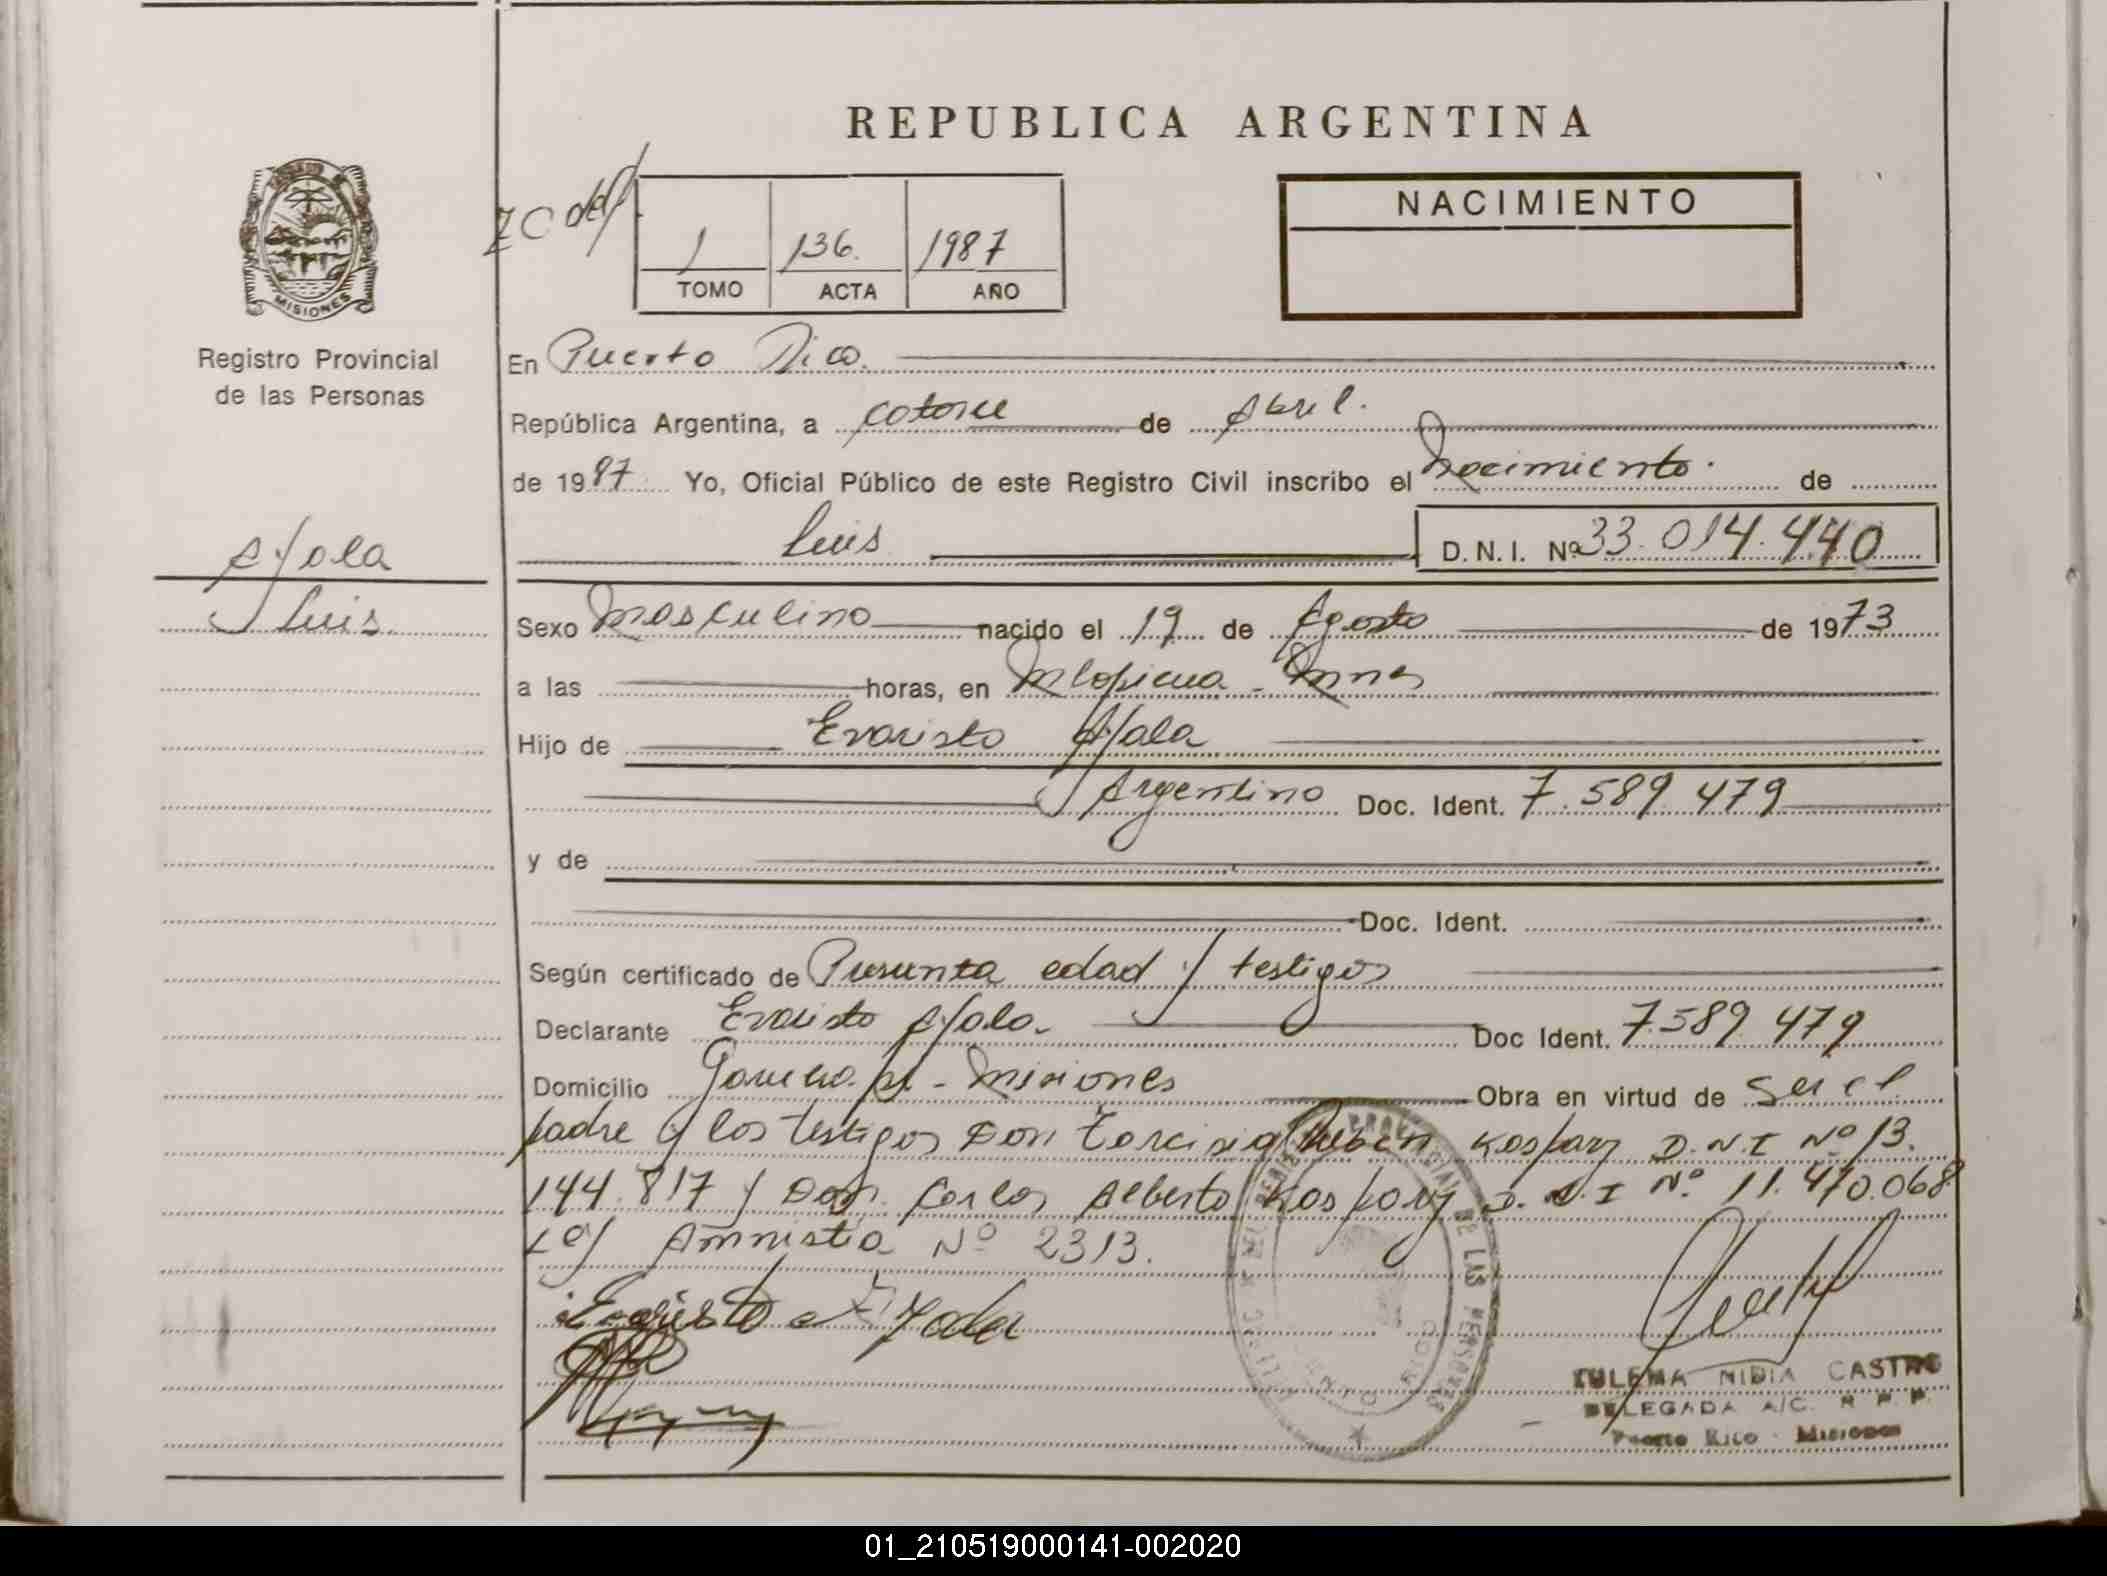 REPUBLICA ARGENTINA
NACIMIENTO
1 136. 1987
TOMO ACTA AÑO
MISIONES
Registro Provincial
de las Personas
En Puerto Rico.
República Argentina, a catorce de Abril.
de 1987 Yo, Oficial Público de este Registro Civil inscribo el Nacimiento. de
Luis D.N.I. Nº 33.014.440
Ayala
Luis
Sexo Masculino nacido el 19 de Agosto de 1973
a las horas, en Mnes
Hijo de Evaristo Ayala
Argentino Doc. Ident. 7.589.479
y de
Doc. Ident.
Según certificado de Presunta edad y testigos
Declarante Evaristo Ayala. Doc Ident. 7.589.479
Domicilio - Misiones Obra en virtud de ser el
padre y los testigos Don Kaspary D.N.I Nº 13.
144.817 y Don Carlos Alberto Kaspary D.N.I Nº 11.470.068
Ley Amnistia Nº 2313.
Ayala
ZULEMA NIDIA CASTRO
DELEGADA A/C. R. P. P.
Puerto Rico - Misiones
01_210519000141-002020